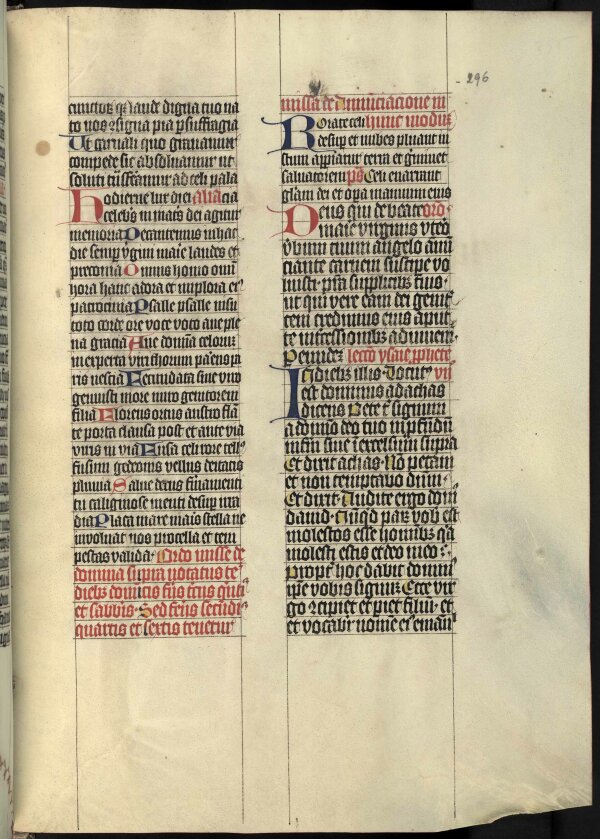 296
cunctorum q̄ laude digna tuo na
to nos ꝯsigna pia ꝑ suffragia
Ut carnali quo grauamur
compede sic absoluamur ut
soluti tūsferamur ad celi pala
Hodierne lux diei alia cia
celebris in matris dei agitur
memoria Decantemus in hac
die semper uirginis marie laudes et
preconia Omnis homo omni
hora hanc adora et implora eius
patrocinia Psalle psalle nisu
toto corde ore uoce uoto aue ple
na gracia Aue domina celorum
inexperta uiri thorum parens pa
ris nescia Fecundata sine uiro
genuisti more miro genitorem
filia Florens ortus austro flan
te porta clausa post et ante uia
uiris inuia Fusa celi rore tellus
fusum gedeonis uellus deitatis
pluuia Salue decus firmamenti
tu caliginose menti desuper irra
dia Placa mare maris stella ne
inuoluat nos procella et tem
pestas ualida. Ordo misse de
domina supra notatus te
diebus dominicis
et sabbatis. Sed feriis secundis
quartis et sextis tenetur
missa de annunciacione in
hunc modum
Rorate celi
desuper et nubes pluant iu
stum aperiatur terra et germinet
saluatorem ps Celi enarrant
gloriam dei et opera manuum eius
Deus qui de beate oro.
marie uirginis utero
uerbum tuum angelo annun
ciante carnem suscipere uo
luisti. presta supplicibus tuis.
ut qui uere eam dei geni
tricem credimus eius aput
te intercessionibus adiuuemur.
Per eundem lectio ysaie prophete
In diebus illis. Locutus vii
est dominus ad achas
dicens Pete tibi signum
a domino deo tuo in profundum
inferni siue in excelsum supra
Et dixit achas. Non petam
et non temptabo dominum.
Et dixit. Audite ergo domus
dauid. Nunquid parum uobis est
molestos esse hominibus quia
molesti estis et deo meo.
Propter hoc dabit dominus
ipse uobis signum. Ecce uir
go concipiet et pariet filium. et
et uocabitur nomen eius emanuel